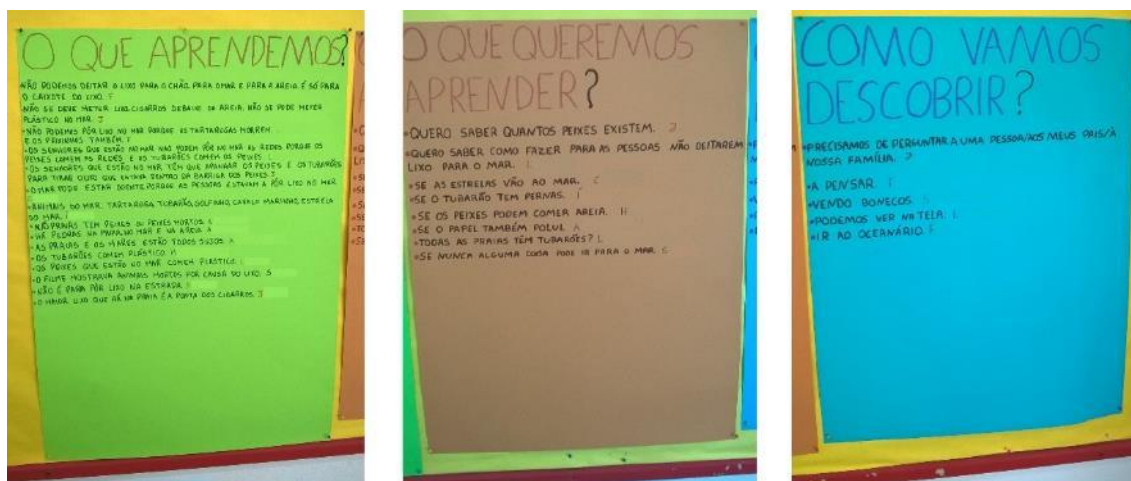 O QUE APRENDEMOS?
•NÃO PODEMOS DEITAR O LIXO PARA O CHÃO, PARA O MAR E PARA A AREIA É SÓ PARA
O CAIXOTE DO LIXO. F
NÃO SE DEVE METER LIXO, CIGARROS DEBAIXO DA AREIA. NÃO SE PODE METER
PLÁSTICO NO MAR. J
•NÃO PODEMOS PÔR LIXO NO MAR PORQUE AS TARTARUGAS MORREM.
E OS PEIXINHOS TAMBÉM.
•OS SENHORES QUE ESTÃO NO MAR NÃO PODEM PÔR NO MAR AS REDES PORQUE OS
PEIXES COMEM AS REDES E OS TUBARÕES COMEM OS PEIXES.
•OS SENHORES QUE ESTÃO NO MAR TÊM QUE APANHAR OS PEIXES E OS TUBARÕES
PARA TIRAR O LIXO QUE ENTAVA DENTRO DA BARRIGA DOS PEIXES.
•O MAR PODE ESTAR DOENTE PORQUE AS PESSOAS ESTAVAM A PÔR LIXO NO MAR.
•ANIMAIS DO MAR: TARTARUGA, TUBARÃO, GOLFINHO, CAVALO MARINHO, ESTRELA
DO MAR.
•NAS PRAIAS TEM PEIXES OU PEIXES MORTOS.
•HÁ PEDRAS NA PRAIA, NO MAR E NA AREIA.
•AS PRAIAS E OS MARES ESTÃO TODOS SUJOS. A
•OS TUBARÕES COMEM PLÁSTICO.
•OS PEIXES QUE ESTÃO NO MAR COMEM PLÁSTICO.
•O FILME MOSTRAVA ANIMAIS MORTOS POR CAUSA DO LIXO. S
•NÃO É PARA PÔR LIXO NA ESTRADA.
•O MAIOR LIXO QUE HÁ NA PRAIA É A PONTA DOS CIGARROS. J
O QUE QUEREMOS
APRENDER?
•QUERO SABER QUANTOS PEIXES EXISTEM. J
•QUERO SABER COMO FAZER PARA AS PESSOAS NÃO DEITAREM
LIXO PARA O MAR.
•SE AS ESTRELAS VÃO AO MAR.
•SE O TUBARÃO TEM PERNAS.
•SE OS PEIXES PODEM COMER AREIA.
•SE O PAPEL TAMBÉM POLUI. A
•TODAS AS PRAIAS TÊM TUBARÕES? L
•SE NUNCA ALGUMA COISA PODE IR PARA O MAR. S
COMO VAMOS
DESCOBRIR?
•PRECISAMOS DE PERGUNTAR A UMA PESSOA/AOS MEUS PAIS/À
NOSSA FAMÍLIA. J
•A PENSAR.
•VENDO BONECOS.
•PODEMOS VER NA TELA. L
•IR AO OCEANÁRIO. F